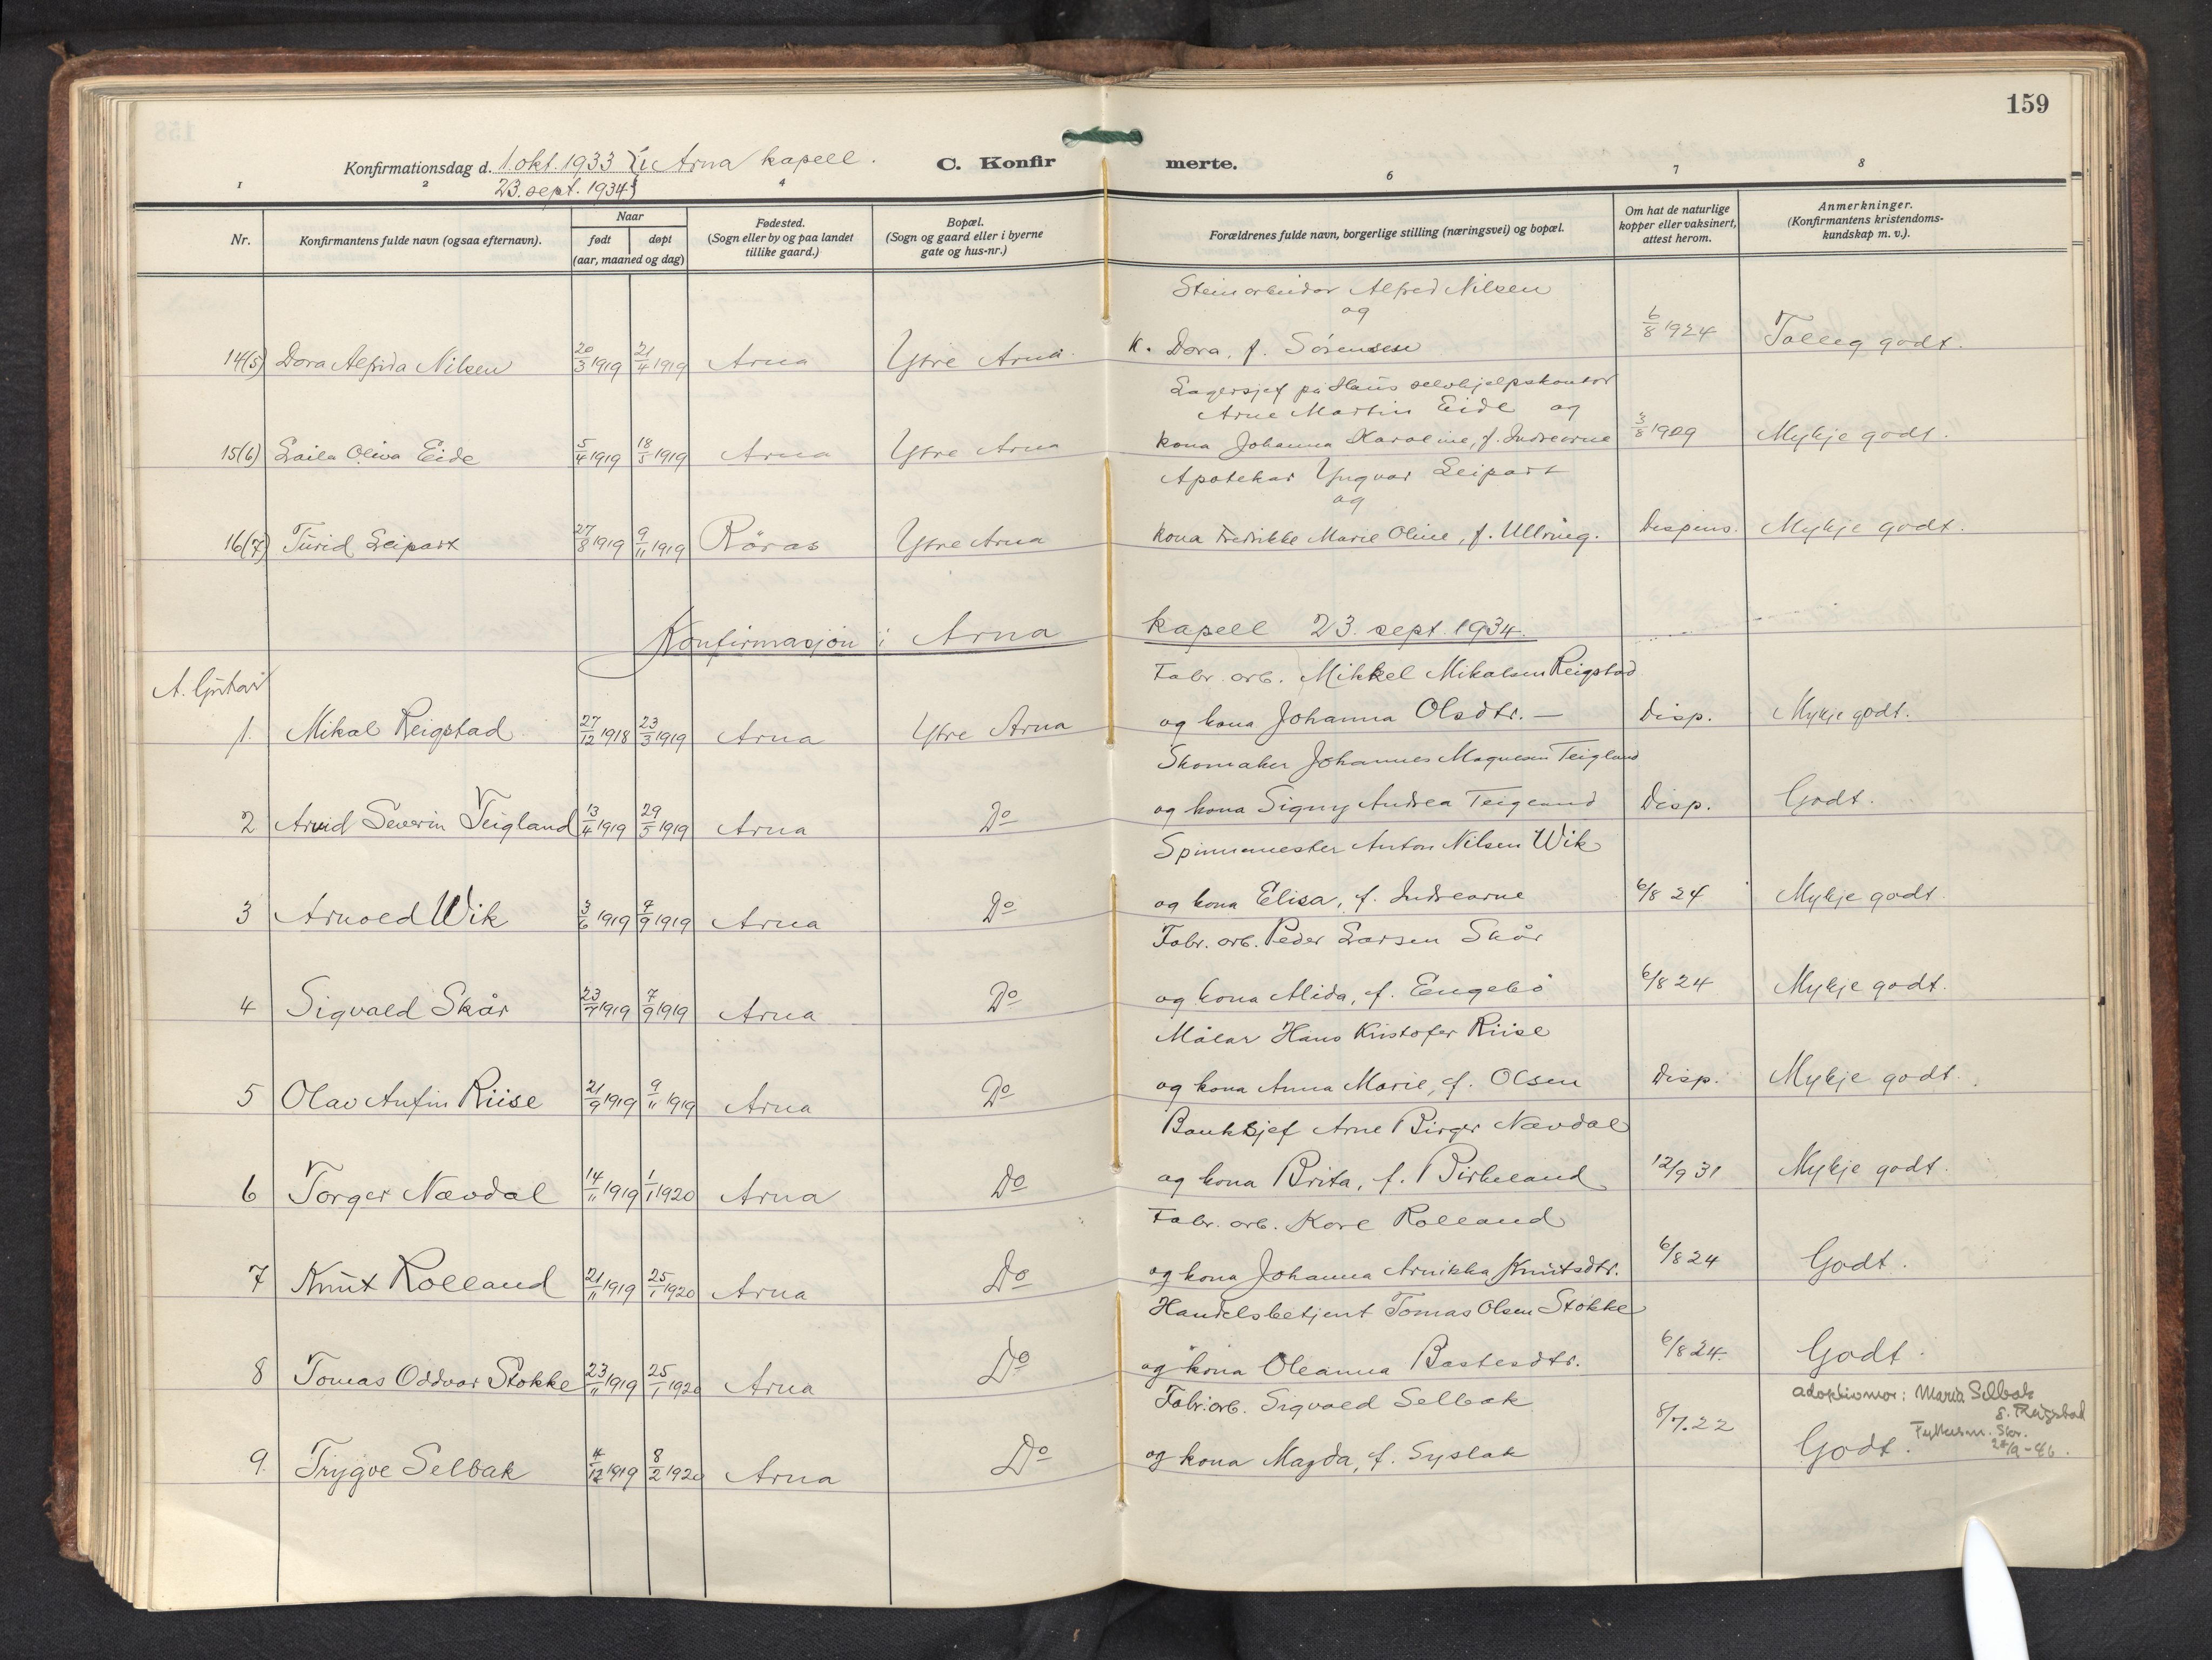 159
Konfirmationsdag d. 1. okt. 1933 } i Arna kapell. C. Konfirmerte.
23. sept. 1934 }
1 2 4 6 7 8
Nr. Konfirmantens fulde navn (ogsaa efternavn). Naar født døpt (aar, maaned og dag) Fødested. (Sogn eller by og paa landet tillike gaard.) Bopæl. (Sogn og gaard eller i byerne gate og hus-nr.) Forældrenes fulde navn, borgerlige stilling (næringsvei) og bopæl. Om hat de naturlige kopper eller vaksinert, attest herom. Anmerkninger. (Konfirmantens kristendoms-kundskap m. v.).
Steinarbeidar Alfred Nilsen
og
14(5) Dora Alfida Nilsen 20/3 1919 21/4 1919 Arna Ytre Arna. k. Dora, f. Sörensen 6/8 1924 Talleg godt.
Lagersjef på Haus selvhjelpskontor
Arne Martin Eide og
15(6) Laila Oliva Eide 5/4 1919 18/5 1919 Arna Ytre Arna kona Johanna Karoline, f. Indrearne 3/8 1929 Mykje godt.
Apotekar Yngvar Leipart
og
16(7) Turid Leipart 27/8 1919 9/11 1919 Röros Ytre Arna kona Fredrikke Marie Oline, f. Ullring. Dispens. Mykje godt.
Konfirmasjon i Arna kapell 23. sept. 1934.
A. Gutar
Fabr. arb. Mikkel Mikalsen Reigstad
1. Mikal Reigstad 27/12 1918 23/3 1919 Arna Ytre Arna og kona Johanna Olsdtr. — Disp. Mykje godt.
Skomaker Johannes Magnesen Teigland
2 Arvid Severin Teigland 13/4 1919 29/5 1919 Arna Do og kona Signy Andrea Teigland Disp. Godt.
Spinnmester Anton Nilsen Wik
3 Arnold Wik 3/6 1919 7/9 1919 Arna Do og kona Elisa, f. Indrearne 6/8 24 Mykje godt
Fabr. arb. Peder Larsen Skår
4 Sigvald Skår 23/7 1919 7/9 1919 Arna Do og kona Alida, f. Engebö 6/8 24 Mykje godt.
Målar Hans Kristofer Riise
5 Olav Anfin Riise 21/9 1919 9/11 1919 Arna Do og kona Anna Marie, f. Olsen Disp. Mykje godt.
Banksjef Arne Birger Nævdal
6 Torger Nævdal 14/11 1919 1/1 1920 Arna Do og kona Brita, f. Birkeland 12/9 31 Mykje godt.
Fabr. arb. Kare Rolland
7 Knut Rolland 21/11 1919 25/1 1920 Arna Do og kona Johanna Arnikka Knutsdtr. 6/8 24 Godt.
Handelsbetjent Tomas Olsen Stokke
8 Tomas Oddvar Stokke 23/11 1919 25/1 1920 Arna Do og kona Oleanna Bastesdtr. 6/8 24. Godt.
Fabr. arb. Sigvald Selbak adoptivmor: Maria Selbak
f. Reigstad
Fylkesm. Skr.
9. Trygve Selbak 4/12 1919 8/2 1920 Arna Do og kona Magda, f. Syslak 8/7.22 Godt. 24/9-46.